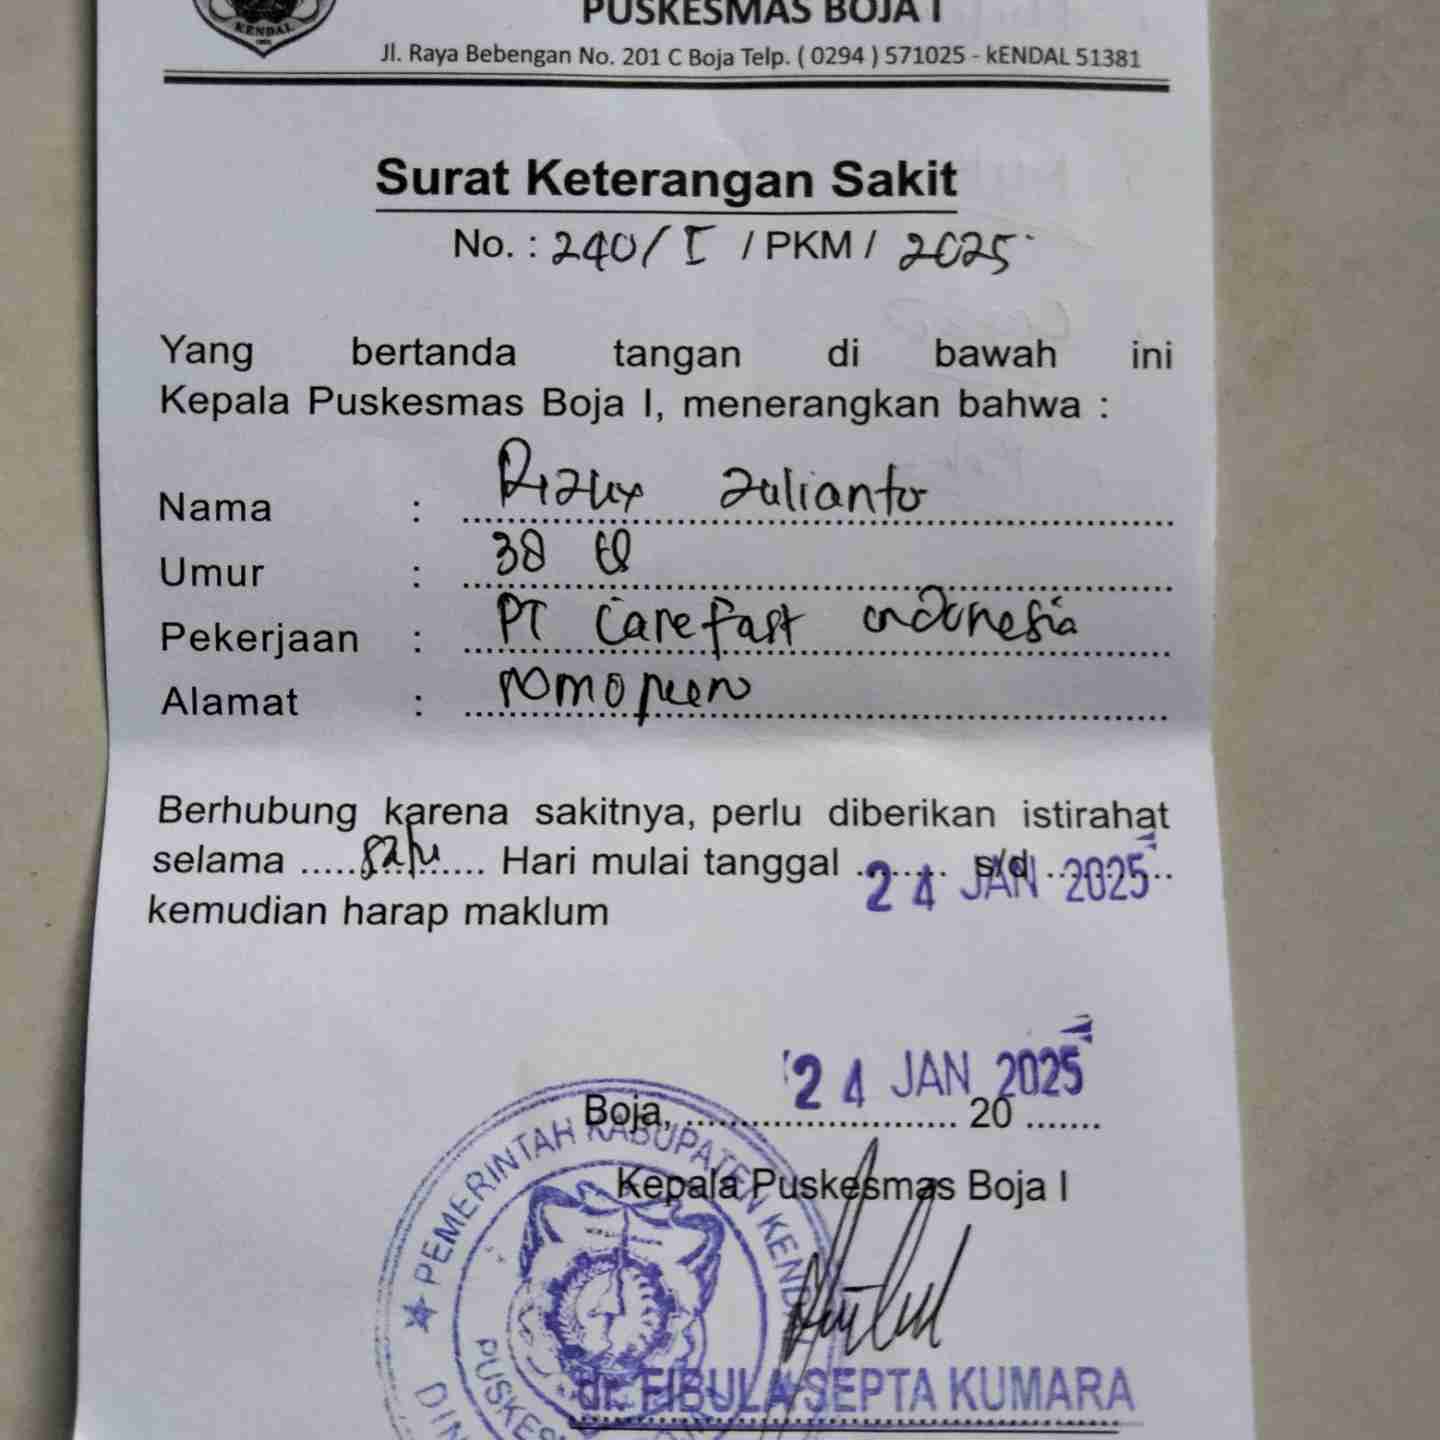 KENDAL
PUSKESMAS BOJA I
Jl. Raya Bebengan No. 201 C Boja Telp. ( 0294 ) 571025 - kENDAL 51381
Surat Keterangan Sakit
No. : 240/ I / PKM / 2025
Yang bertanda tangan di bawah ini
Kepala Puskesmas Boja I, menerangkan bahwa :
Nama : Rizky Julianto
Umur : 38 th
Pekerjaan : PT Carefast Indonesia
Alamat :
Berhubung karena sakitnya, perlu diberikan istirahat
selama ..... satu ..... Hari mulai tanggal ........ s/d ......... 24 JAN 2025
kemudian harap maklum
24 JAN 2025
Boja, ......................... 20 .......
Kepala Puskesmas Boja I
PEMERINTAH KABUPATEN KENDAL
dr. FIBULA SEPTA KUMARA